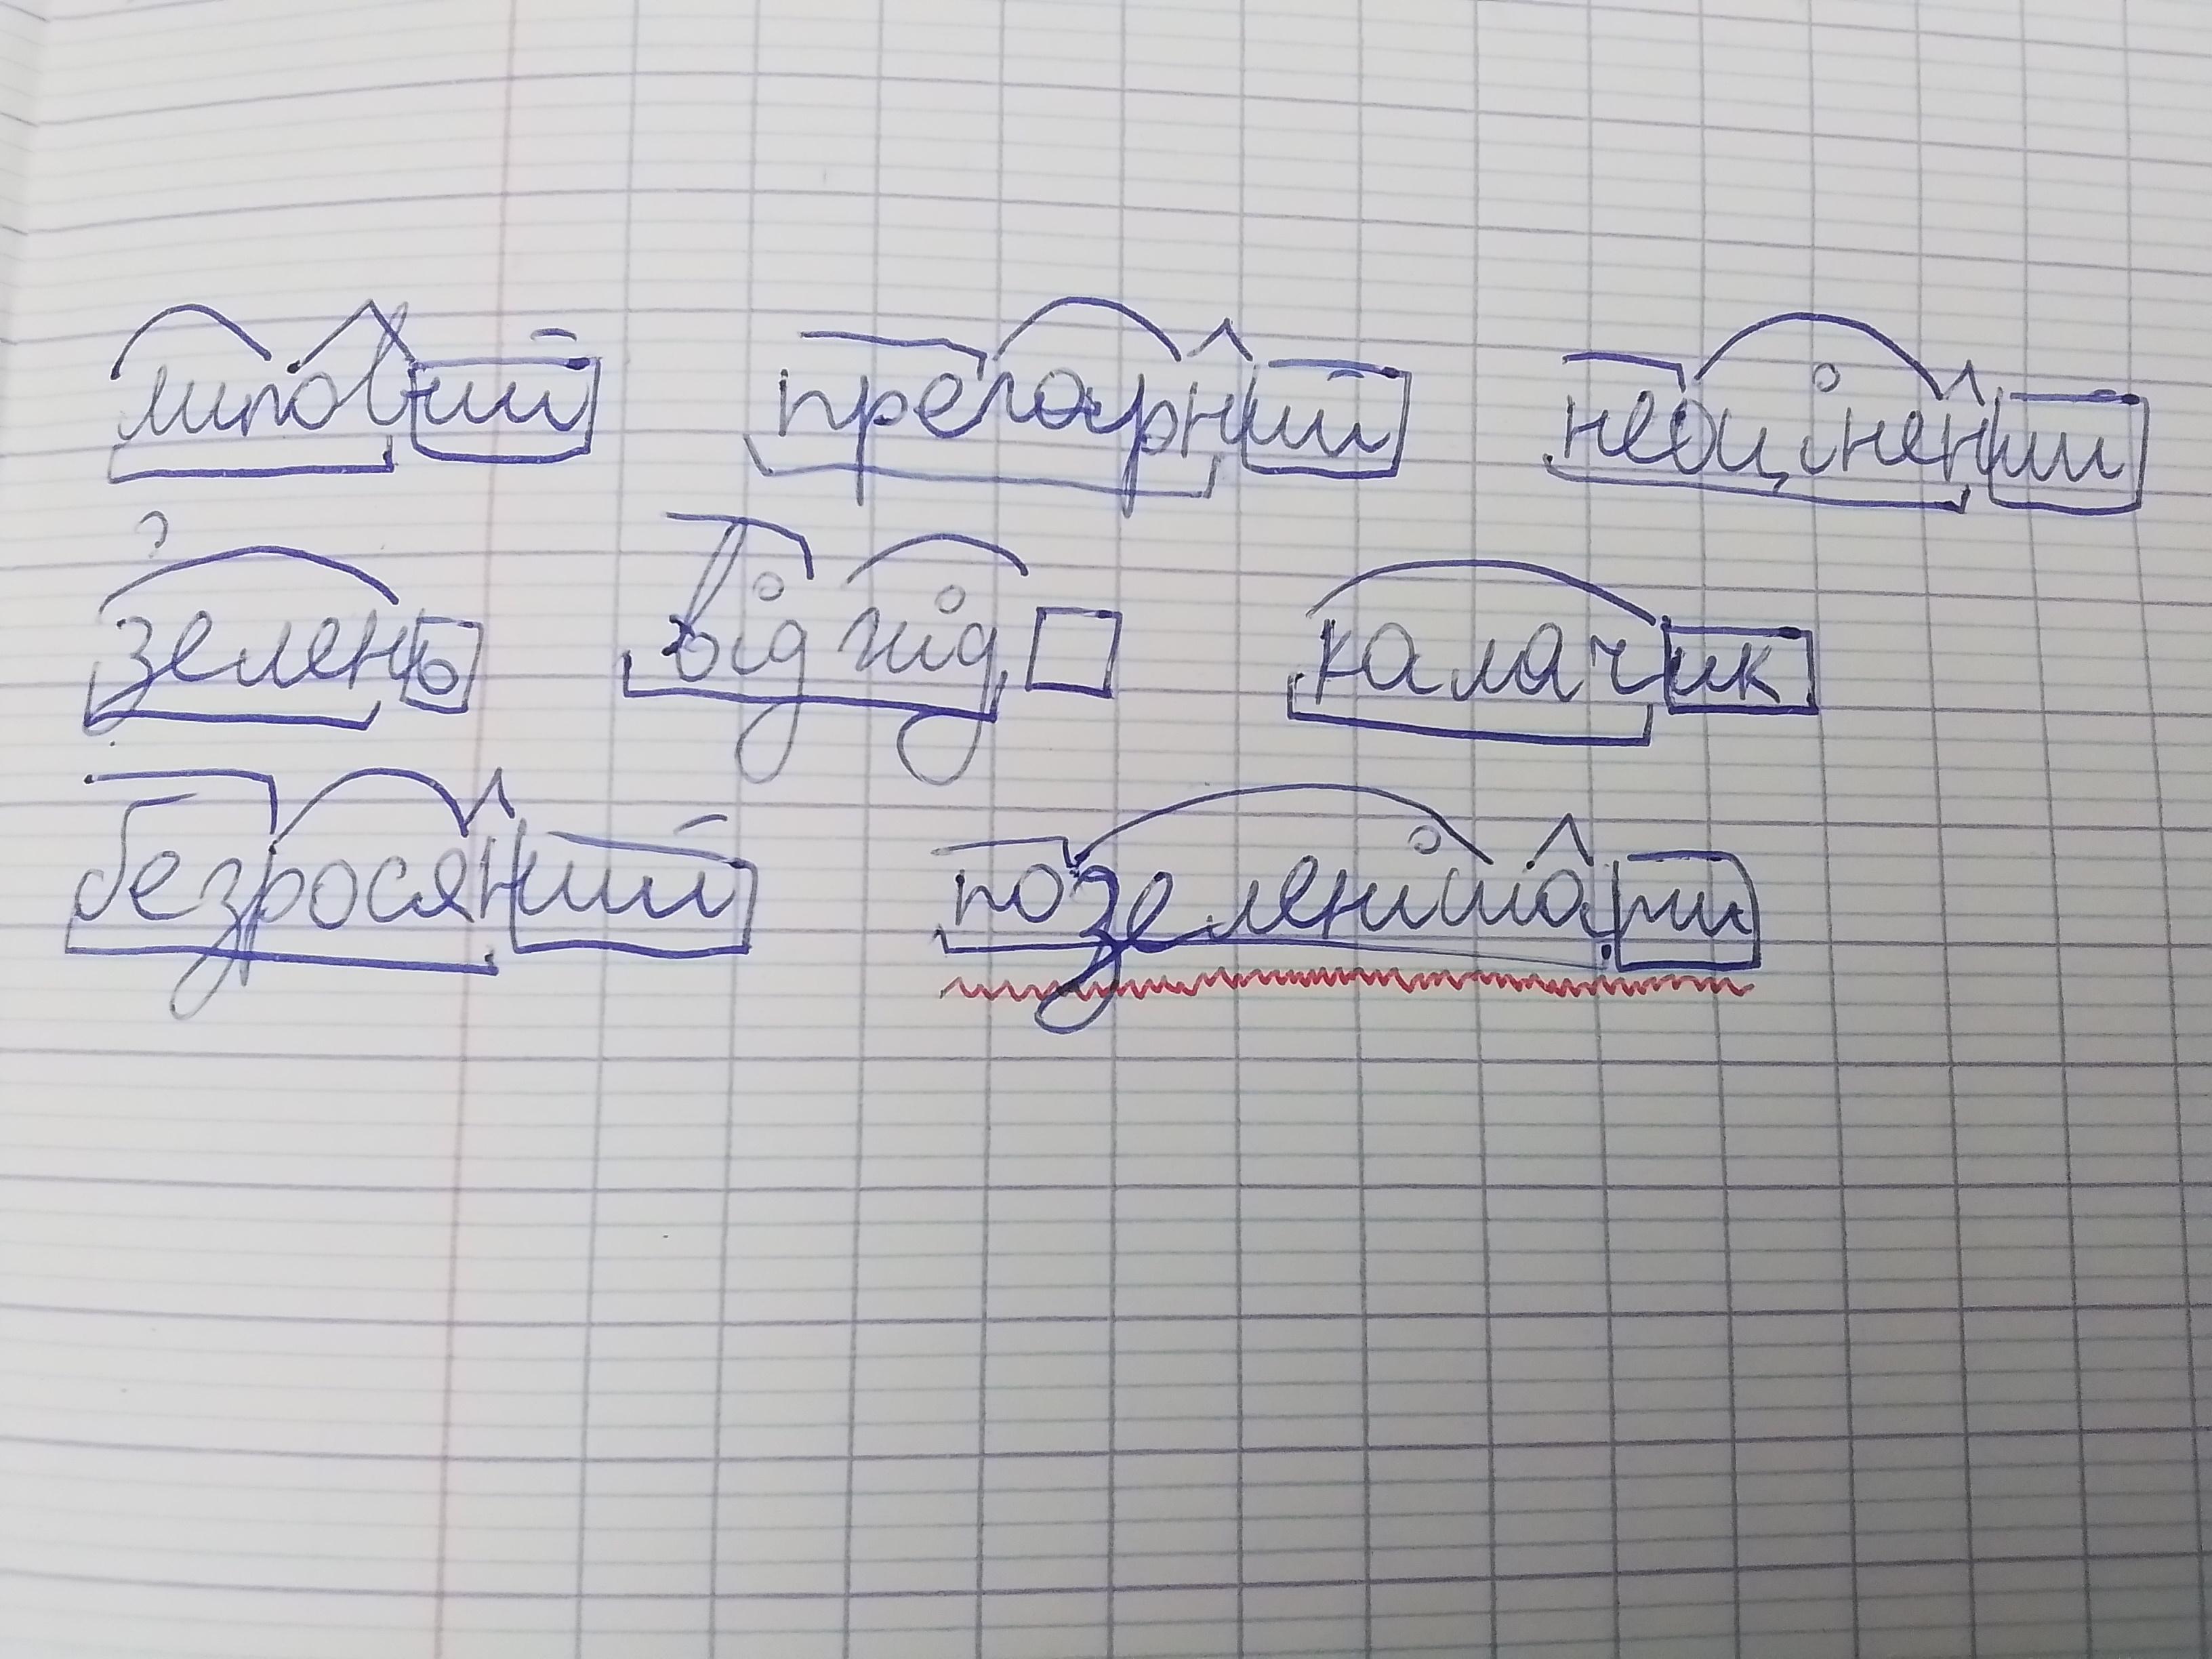 липовий прегарний неоцінений
зелень калачик
безросяний позеленішати